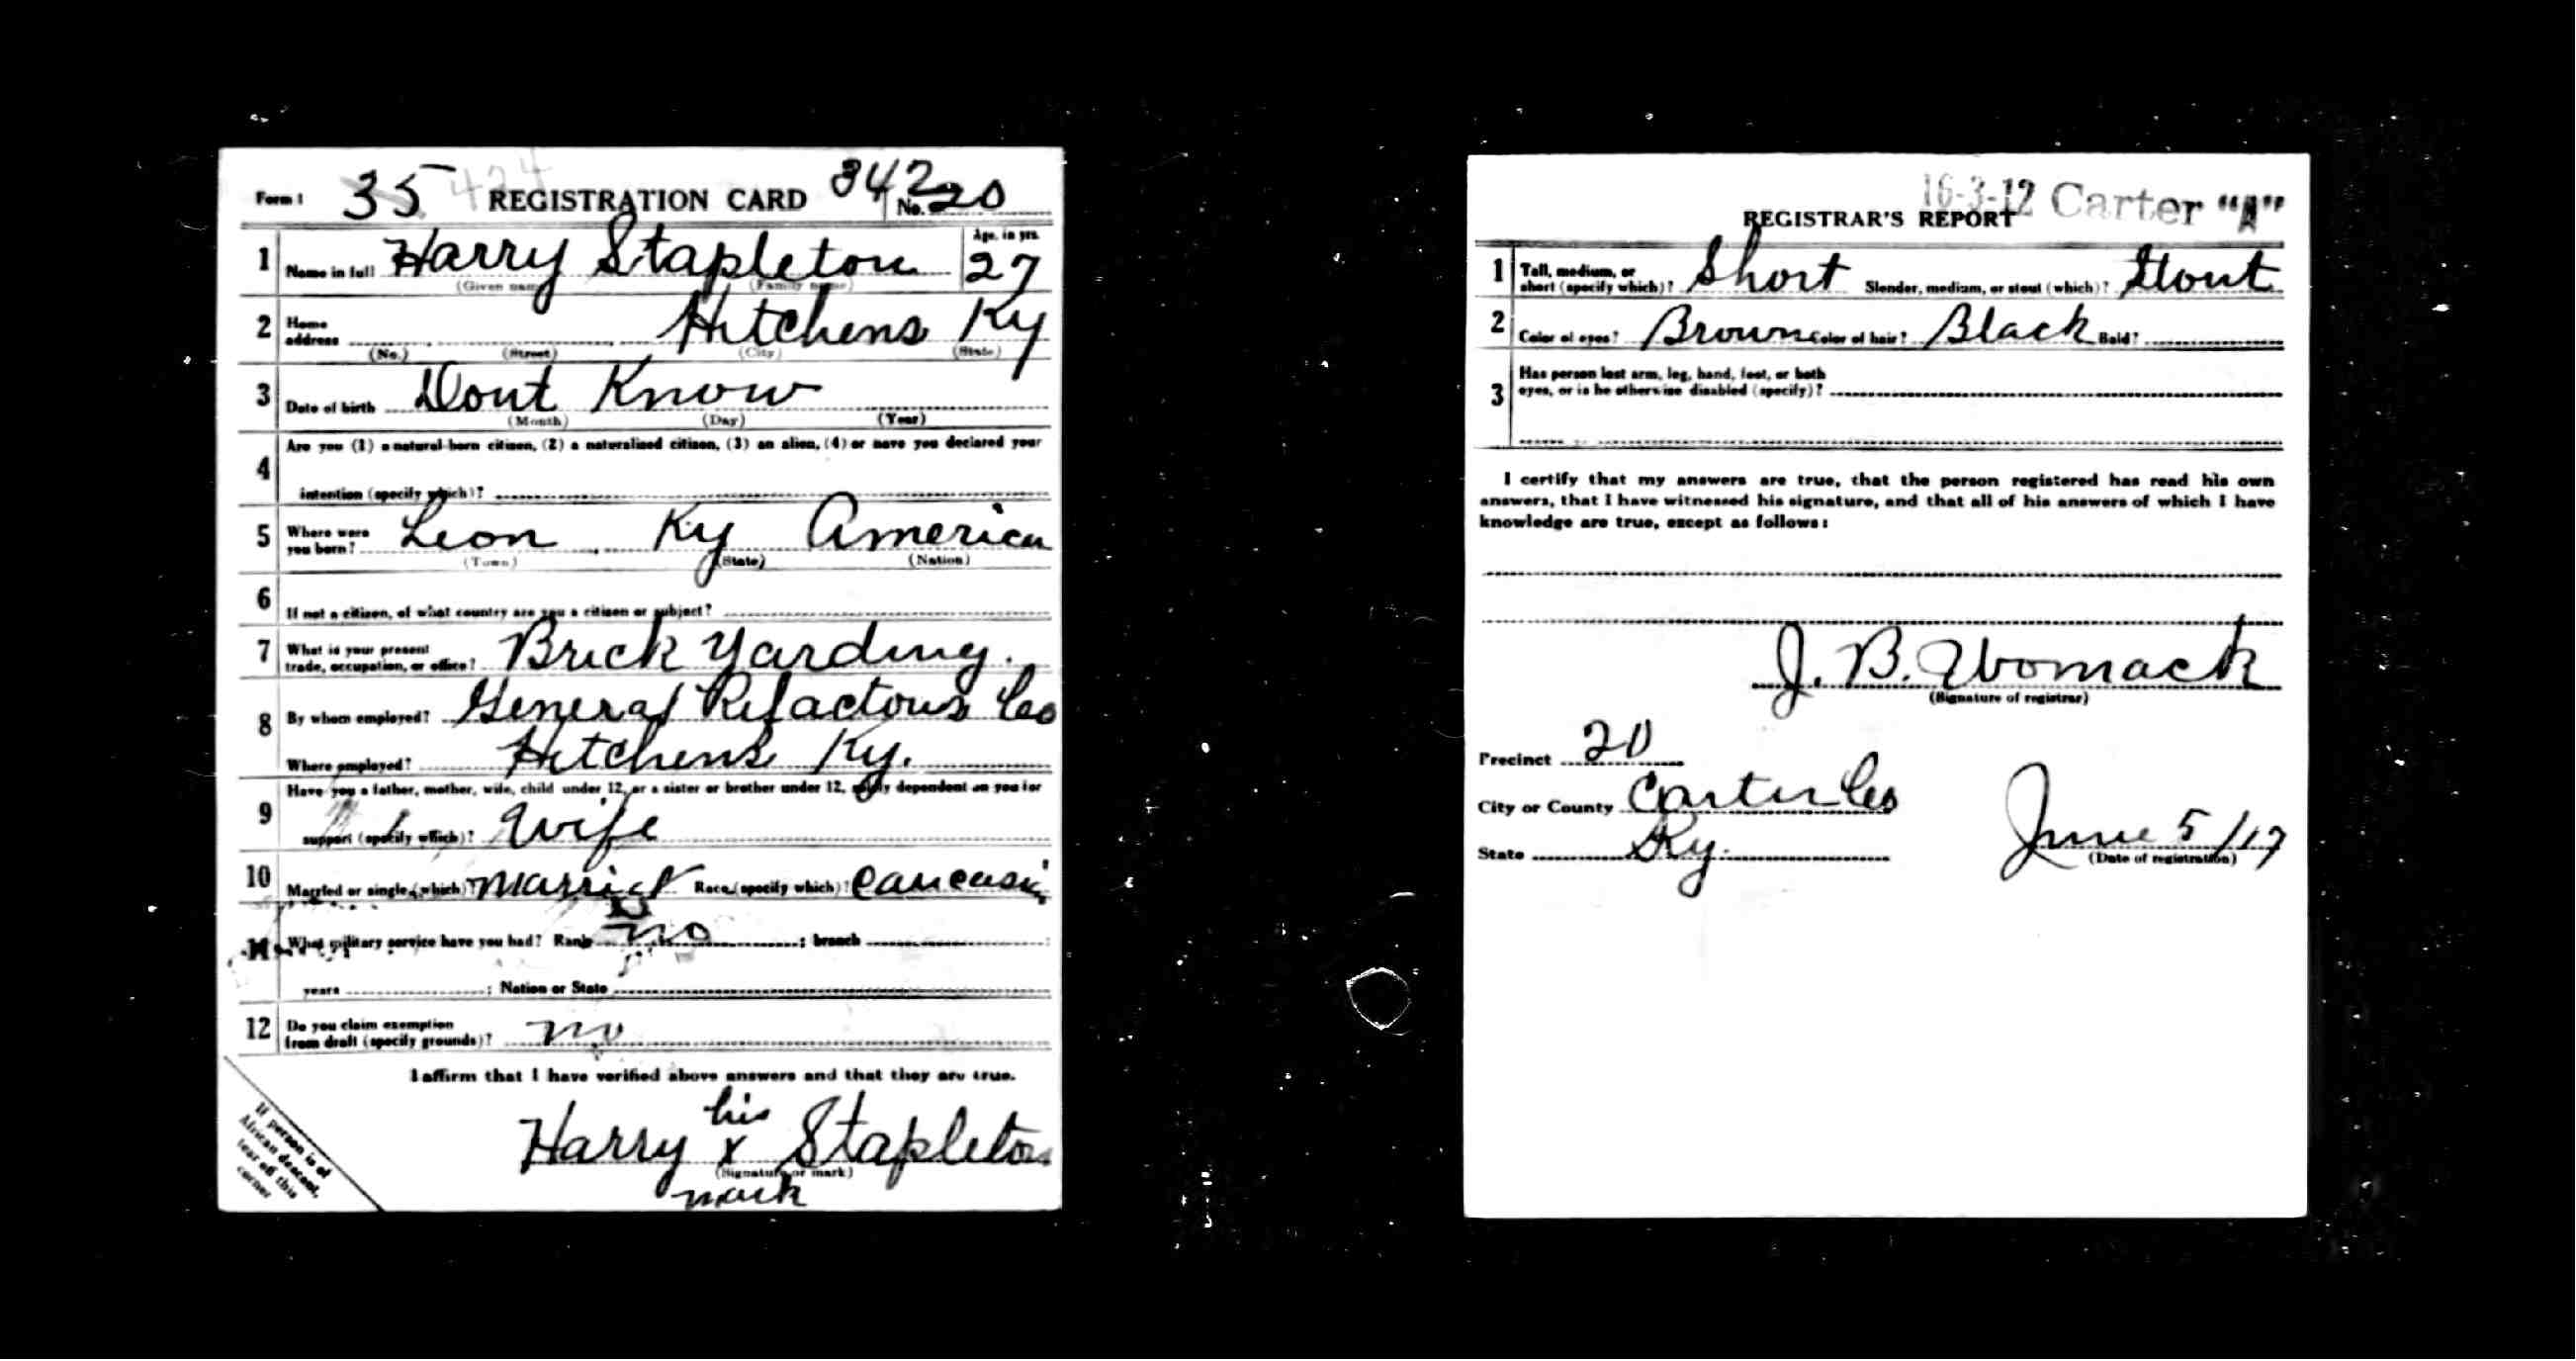 Form 1 35 424 REGISTRATION CARD 342 No. 20
1 Name in full Harry Stapleton Age, in yrs. 27
(Given name) (Family name)
2 Home address Hitchens Ky
(No.) (Street) (City) (State)
3 Date of birth Dont Know
(Month) (Day) (Year)
4 Are you (1) a natural-born citizen, (2) a naturalized citizen, (3) an alien, (4) or have you declared your
intention (specify which)?
5 Where were you born? Leon Ky America
(Town) (State) (Nation)
6 If not a citizen, of what country are you a citizen or subject?
7 What is your present trade, occupation, or office? Brick Yarding.
8 By whom employed? General Refactous Co
Where employed? Hitchens Ky.
9 Have you a father, mother, wife, child under 12, or a sister or brother under 12, solely dependent on you for
support (specify which)? Wife
10 Married or single (which)? Married Race (specify which)? Caucasi
11 What military service have you had? Rank no ; branch
years ; Nation or State
12 Do you claim exemption from draft (specify grounds)? no
I affirm that I have verified above answers and that they are true.
his
Harry x Stapleton
(Signature or mark)
mark
If person is of
African descent,
tear off this
corner
16-3-12 Carter "A"
REGISTRAR'S REPORT
1 Tall, medium, or short (specify which)? Short Slender, medium, or stout (which)? Stout
2 Color of eyes? Brown Color of hair? Black Bald?
3 Has person lost arm, leg, hand, foot, or both
eyes, or is he otherwise disabled (specify)?
I certify that my answers are true, that the person registered has read his own
answers, that I have witnessed his signature, and that all of his answers of which I have
knowledge are true, except as follows:
J. B. Womack
(Signature of registrar)
Precinct 20
City or County Carter Co
State Ky.
June 5/17
(Date of registration)